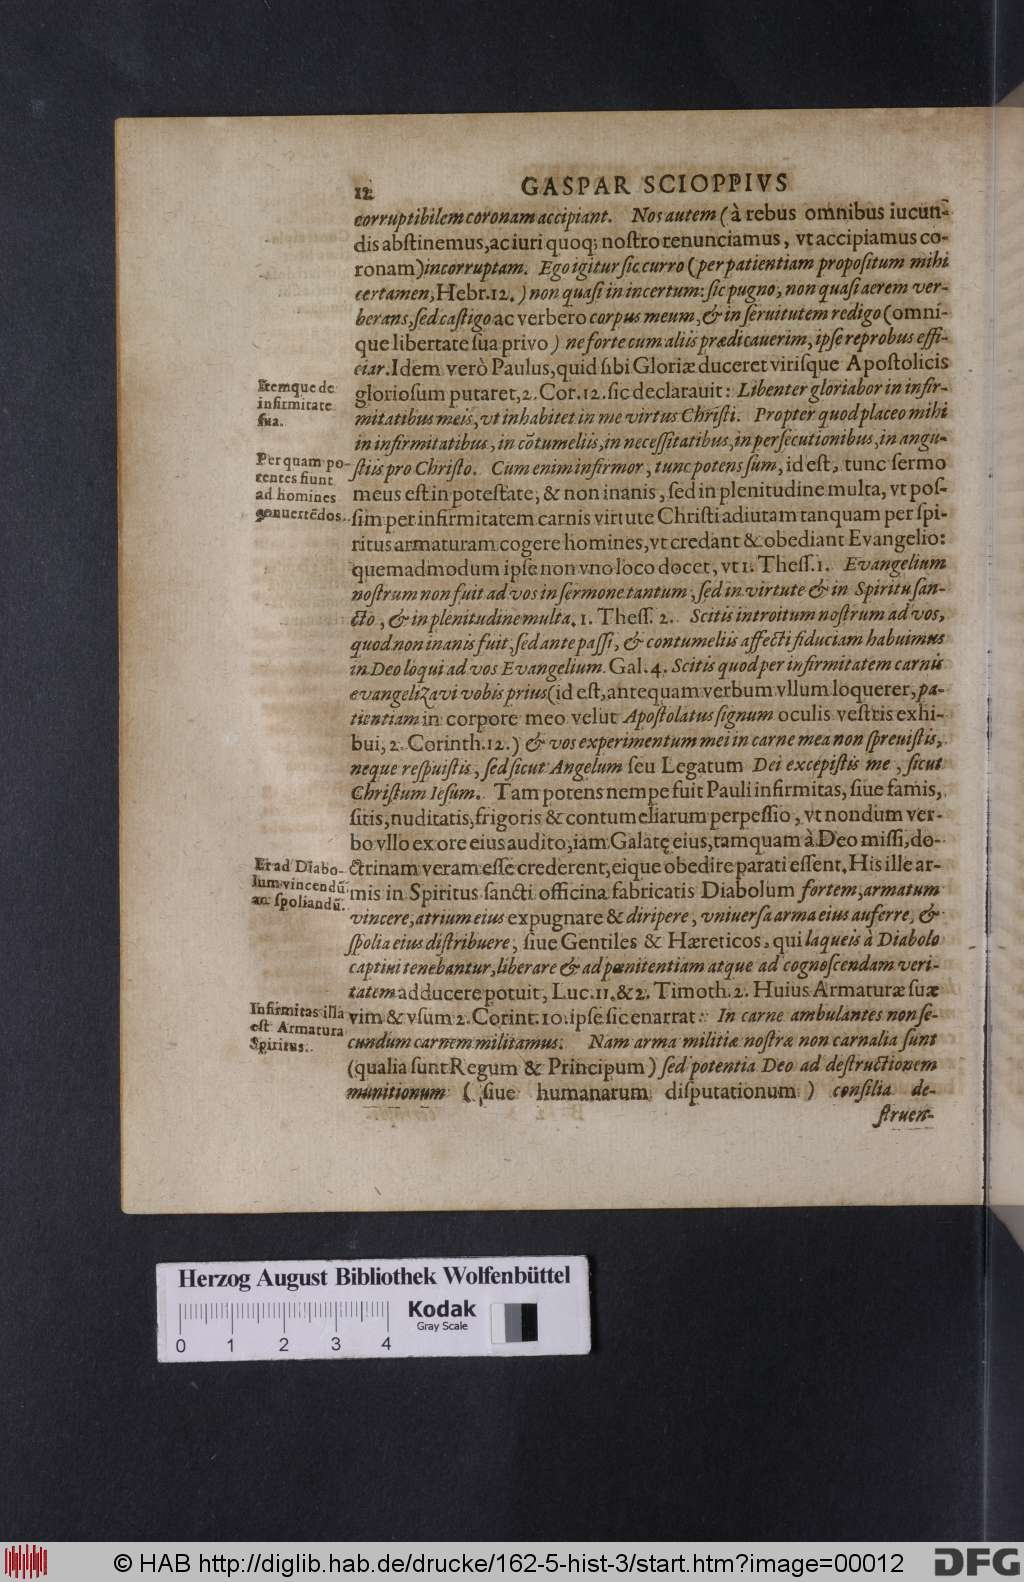 12 GASPAR SCIOPPIVS
corruptibilem coronam accipiant. Nos autem (à rebus omnibus iucun-
dis abſtinemus, ac iuri quoq; noſtro renunciamus, vt accipiamus co-
ronam) incorruptam. Ego igitur ſic curro (per patientiam propoſitum mihi
certamen, Hebr. 12.) non quaſi in incertum: ſic pugno, non quaſi aerem ver-
berans, ſed caſtigo ac verbero corpus meum, & in ſeruitutem redigo (omni-
que libertate ſua privo) ne forte cum aliis prædicauerim, ipſe reprobus effi-
ciar. Idem verò Paulus, quid ſibi Gloriæ duceret viriſque Apoſtolicis
Itemque de
infirmitate
ſua.
glorioſum putaret, 2. Cor. 12. ſic declarauit: Libenter gloriabor in infir-
mitatibus meis, vt inhabitet in me virtus Chriſti. Propter quod placeo mihi
in infirmitatibus, in cõtumeliis, in neceſſitatibus, in perſecutionibus, in angu-
Per quam po-
tentes fiunt
ad homines
conuertẽdos.
ſtiis pro Chriſto. Cum enim infirmor, tunc potens ſum, id eſt, tunc ſermo
meus eſt in poteſtate, & non inanis, ſed in plenitudine multa, vt poſ-
ſim per infirmitatem carnis virtute Chriſti adiutam tanquam per ſpi-
ritus armaturam cogere homines, vt credant & obediant Evangelio:
quemadmodum ipſe non vno loco docet, vt 1. Theſſ. 1. Evangelium
noſtrum non fuit ad vos in ſermone tantum, ſed in virtute & in Spiritu ſan-
cto, & in plenitudine multa. 1. Theſſ. 2. Scitis introitum noſtrum ad vos,
quod non inanis fuit, ſed ante paſſi, & contumeliis affecti fiduciam habuimus
in Deo loqui ad vos Evangelium. Gal. 4. Scitis quod per infirmitatem carnis
evangelizavi vobis prius (id eſt, antequam verbum vllum loquerer, pa-
tientiam in corpore meo velut Apoſtolatus ſignum oculis veſtris exhi-
bui, 2. Corinth. 12.) & vos experimentum mei in carne mea non ſpreuiſtis,
neque reſpuiſtis, ſed ſicut Angelum ſeu Legatum Dei excepiſtis me, ſicut
Chriſtum Ieſum. Tam potens nempe fuit Pauli infirmitas, ſiue famis,
ſitis, nuditatis, frigoris & contumeliarum perpeſſio, vt nondum ver-
bo vllo ex ore eius audito, iam Galatę eius, tamquam à Deo miſſi, do-
Et ad Diabo-
lum vincendũ
ac ſpoliandũ.
ctrinam veram eſſe crederent, eique obedire parati eſſent. His ille ar-
mis in Spiritus ſancti officina fabricatis Diabolum fortem, armatum
vincere, atrium eius expugnare & diripere, vniuerſa arma eius auferre, &
ſpolia eius diſtribuere, ſiue Gentiles & Hæreticos, qui laqueis à Diabolo
captiui tenebantur, liberare & ad pœnitentiam atque ad cognoſcendam veri-
tatem adducere potuit, Luc. 11. & 2. Timoth. 2. Huius Armaturæ ſuæ
Infirmitas illa
eſt Armatura
Spiritus.
vim & vſum 2. Corint. 10. ipſe ſic enarrat: In carne ambulantes non ſe-
cundum carnem militamus. Nam arma militiæ noſtræ non carnalia ſunt
(qualia ſunt Regum & Principum) ſed potentia Deo ad deſtructionem
munitionum (ſiue humanarum diſputationum) conſilia de-
ſtruen-
Herzog August Bibliothek Wolfenbüttel
Kodak
Gray Scale
0 1 2 3 4
© HAB http://diglib.hab.de/drucke/162-5-hist-3/start.htm?image=00012
DFG